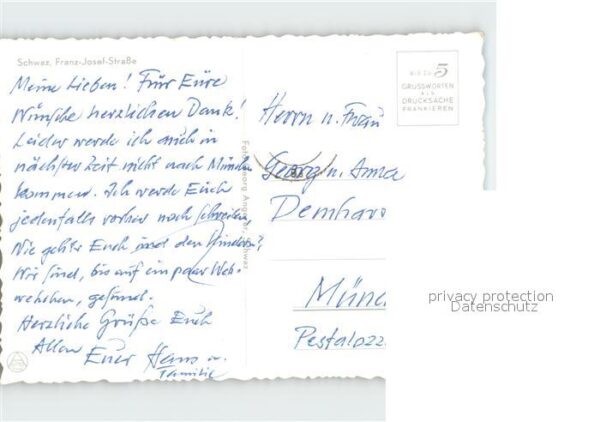 Schwaz, Franz-Josef-Straße
Meine Lieben! Für Eure
Wünsche herzlichen Dank!
Leider werde ich auch in
nächster Zeit nicht nach München
kommen. Ich werde Euch
jedenfalls vorher noch schreiben.
Wie geht's Euch und den Kindern?
Wir sind, bis auf ein paar Weh-
wehchen, gesund.
Herzliche Grüße Euch
Allen Euer Hans u.
Familie
Foto Georg Angerer, Schwaz
BIS ZU 5
GRUSSWORTEN
ALS
DRUCKSACHE
FRANKIEREN
Herrn u. Frau
Georg u. Anna
Demhar
Münc
Pestalozz
privacy protection
Datenschutz